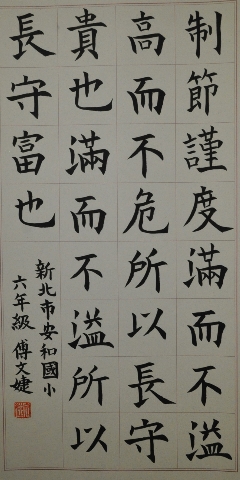 制節謹度滿而不溢
高而不危所以長守
貴也滿而不溢所以
長守富也
新北市安和國小
六年級 傅文婕